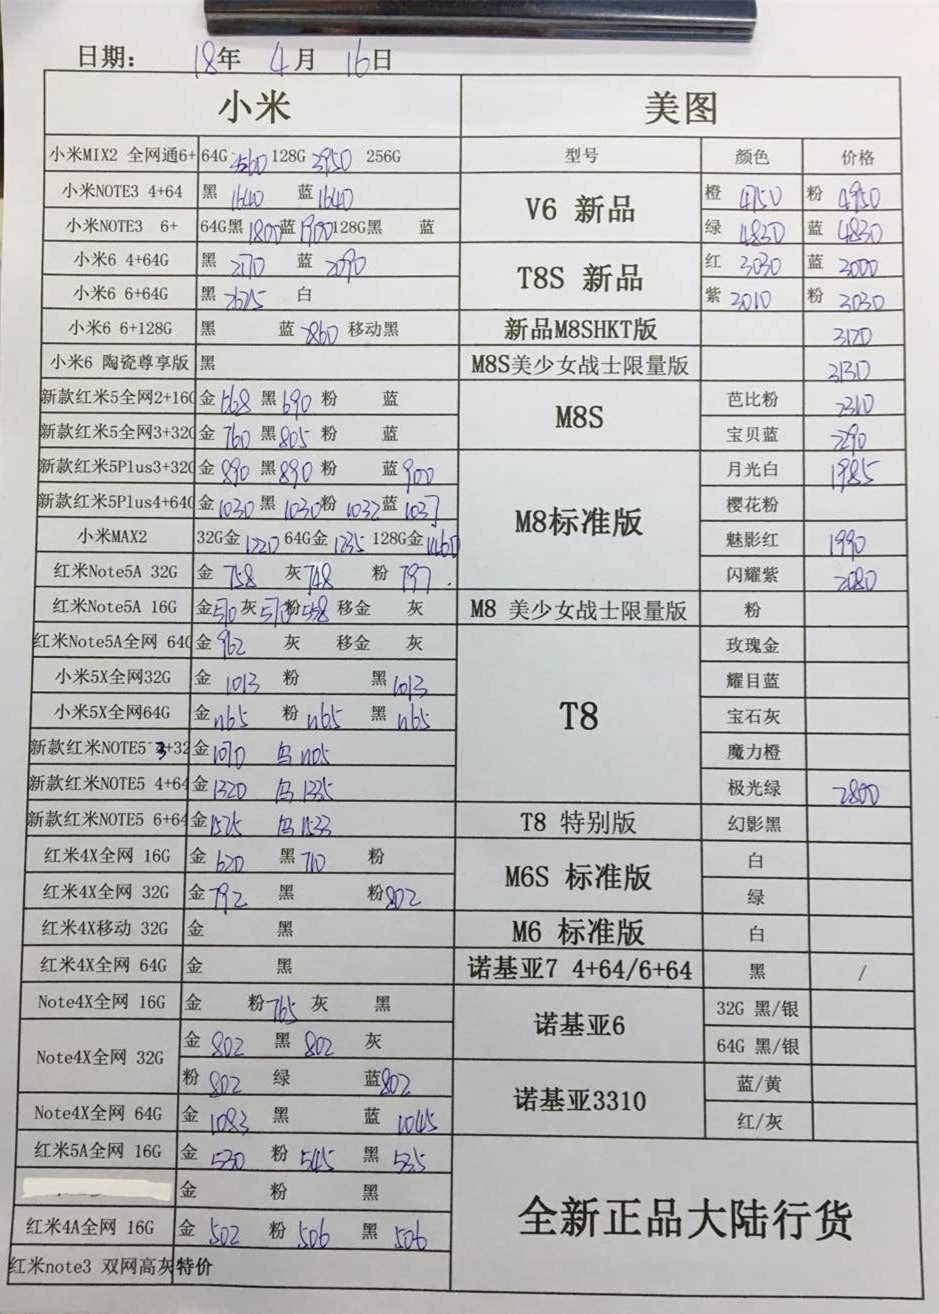 日期： 18年 4月 16日
小米 美图
小米MIX2 全网通6+ 64G 128G 3950 256G 型号 颜色 价格
小米NOTE3 4+64 黑 1640 蓝 1640
V6 新品 橙 4750 粉 4950
小米NOTE3 6+ 64G黑 1800 蓝 1900 128G黑 蓝
绿 4830 蓝 4830
小米6 4+64G 黑 蓝
T8S 新品 红 3030 蓝 3000
小米6 6+64G 黑 白
紫 3010 粉 3030
小米6 6+128G 黑 蓝 移动黑 新品M8SHKT版 3120
小米6 陶瓷尊享版 黑 M8S美少女战士限量版
新款红米5全网2+16G 金 668 黑 690 粉 蓝
M8S 芭比粉 2310
新款红米5全网3+32G 金 760 黑 805 粉 蓝
宝贝蓝 2290
新款红米5Plus3+32G 金 890 黑 890 粉 蓝 900
M8标准版 月光白 1985
新款红米5Plus4+64G 金 1030 黑 1030 粉 1032 蓝 1037
樱花粉
小米MAX2 32G金 1220 64G金 1235 128G金 1460
魅影红 1990
红米Note5A 32G 金 758 灰 748 粉 797
闪耀紫 2080
红米Note5A 16G 金 570 灰 570 粉 558 移金 灰 M8 美少女战士限量版 粉
红米Note5A全网 64G 金 962 灰 移金 灰
T8 玫瑰金
小米5X全网32G 金 1013 粉 黑 1013
耀目蓝
小米5X全网64G 金 1165 粉 1165 黑 1165
宝石灰
新款红米NOTE5 3+32 金 1070 乌 1105
魔力橙
新款红米NOTE5 4+64 金 1320 乌 1335
极光绿 2800
新款红米NOTE5 6+64 金 1525 乌 1533 T8 特别版 幻影黑
红米4X全网 16G 金 620 黑 710 粉
M6S 标准版 白
红米4X全网 32G 金 792 黑 粉 802
绿
红米4X移动 32G 金 黑 M6 标准版 白
红米4X全网 64G 金 黑 诺基亚7 4+64/6+64 黑 /
Note4X全网 16G 金 粉 765 灰 黑
诺基亚6 32G 黑/银
Note4X全网 32G 金 802 黑 802 灰
64G 黑/银
粉 802 绿 蓝 802
诺基亚3310 蓝/黄
Note4X全网 64G 金 1083 黑 蓝 1045
红/灰
红米5A全网 16G 金 530 粉 545 黑 535
金 粉 黑
全新正品大陆行货
红米4A全网 16G 金 502 粉 506 黑 506
红米note3 双网高灰特价